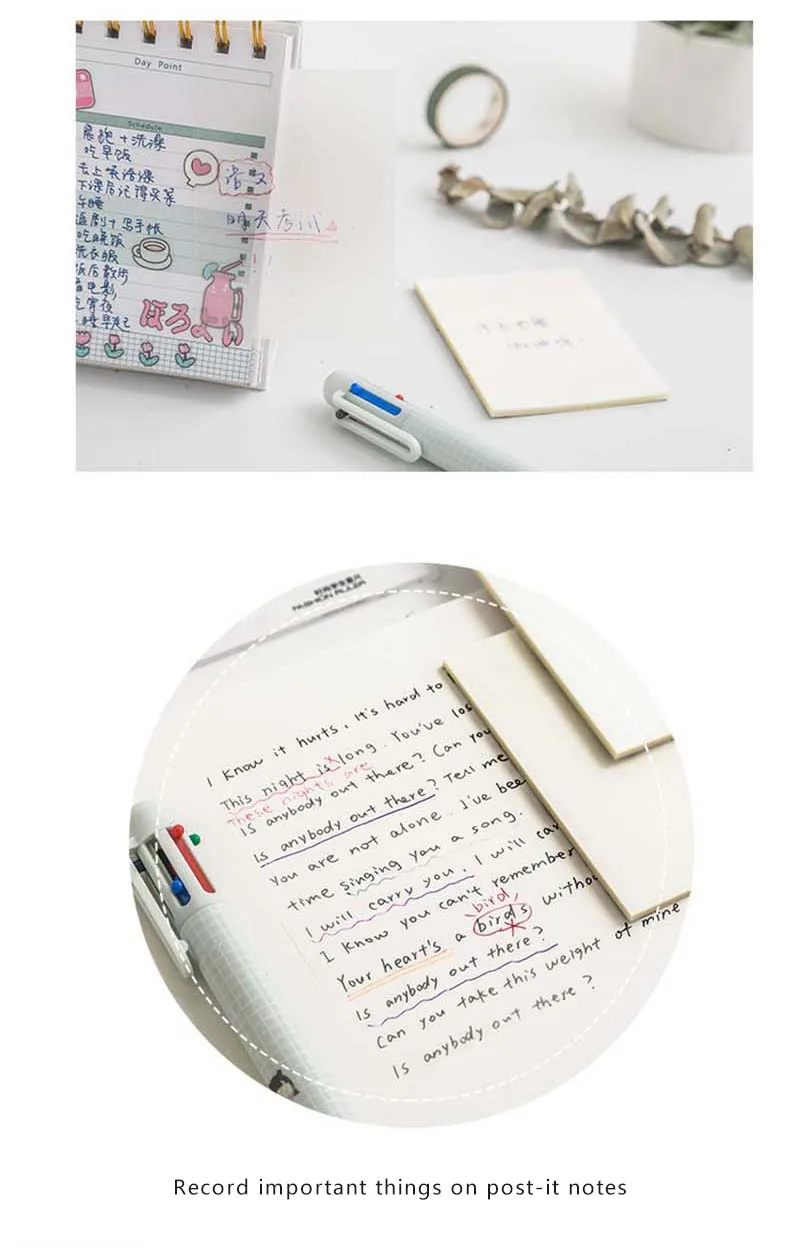 Day Point
Schedule
晨跑+洗澡
吃早饭
去上英语课
下课后记得买菜
午睡
追剧+写手帐
吃晚饭
洗衣服
饭后散步
看电影
吃宵夜
睡早起
语文
明天考试
ほろよい
时尚学生直尺
FASHION RULER
I know it hurts. It's hard to
This night is long. You've los
These nights are
Is anybody out there? Can you
Is anybody out there? Tell me
You are not alone. I've bee
time singing you a song.
I will carry you. I will car
I know you can't remember
bird
Your heart's a birds withou
Is anybody out there?
Can you take this weight of mine
Is anybody out there?
Record important things on post-it notes